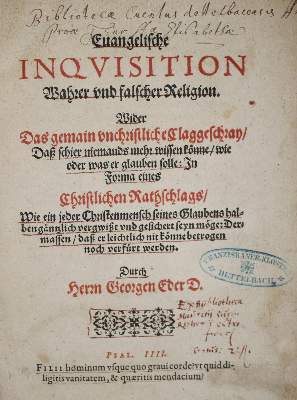 Bibliothecæ Conventus dettelbacensis
Evangelische
INQVISITION
Wahrer vnd falscher Religion.
Wider
Das gemain vnchristliche Claggeschray/
Daß schier niemands mehr wissen könne/ wie
oder was er glauben solle: In
Forma eines
Christlichen Rathschlags/
Wie ein jeder Christenmensch seines Glaubens hal-
ben gäntzlich vergwißt vnd gesichert seyn möge: Der-
massen/ daß er leichtlich nit könne betrogen
noch verfürt werden.
Durch
Herrn Georgen Eder D.
FRANZISKANER-KLOSTER
DETTELBACH.
Ex Bibliotheca
PSAL. IIII.
FILII hominum vsque quo graui corde? vt quid di-
ligitis vanitatem, & quæritis mendacium?